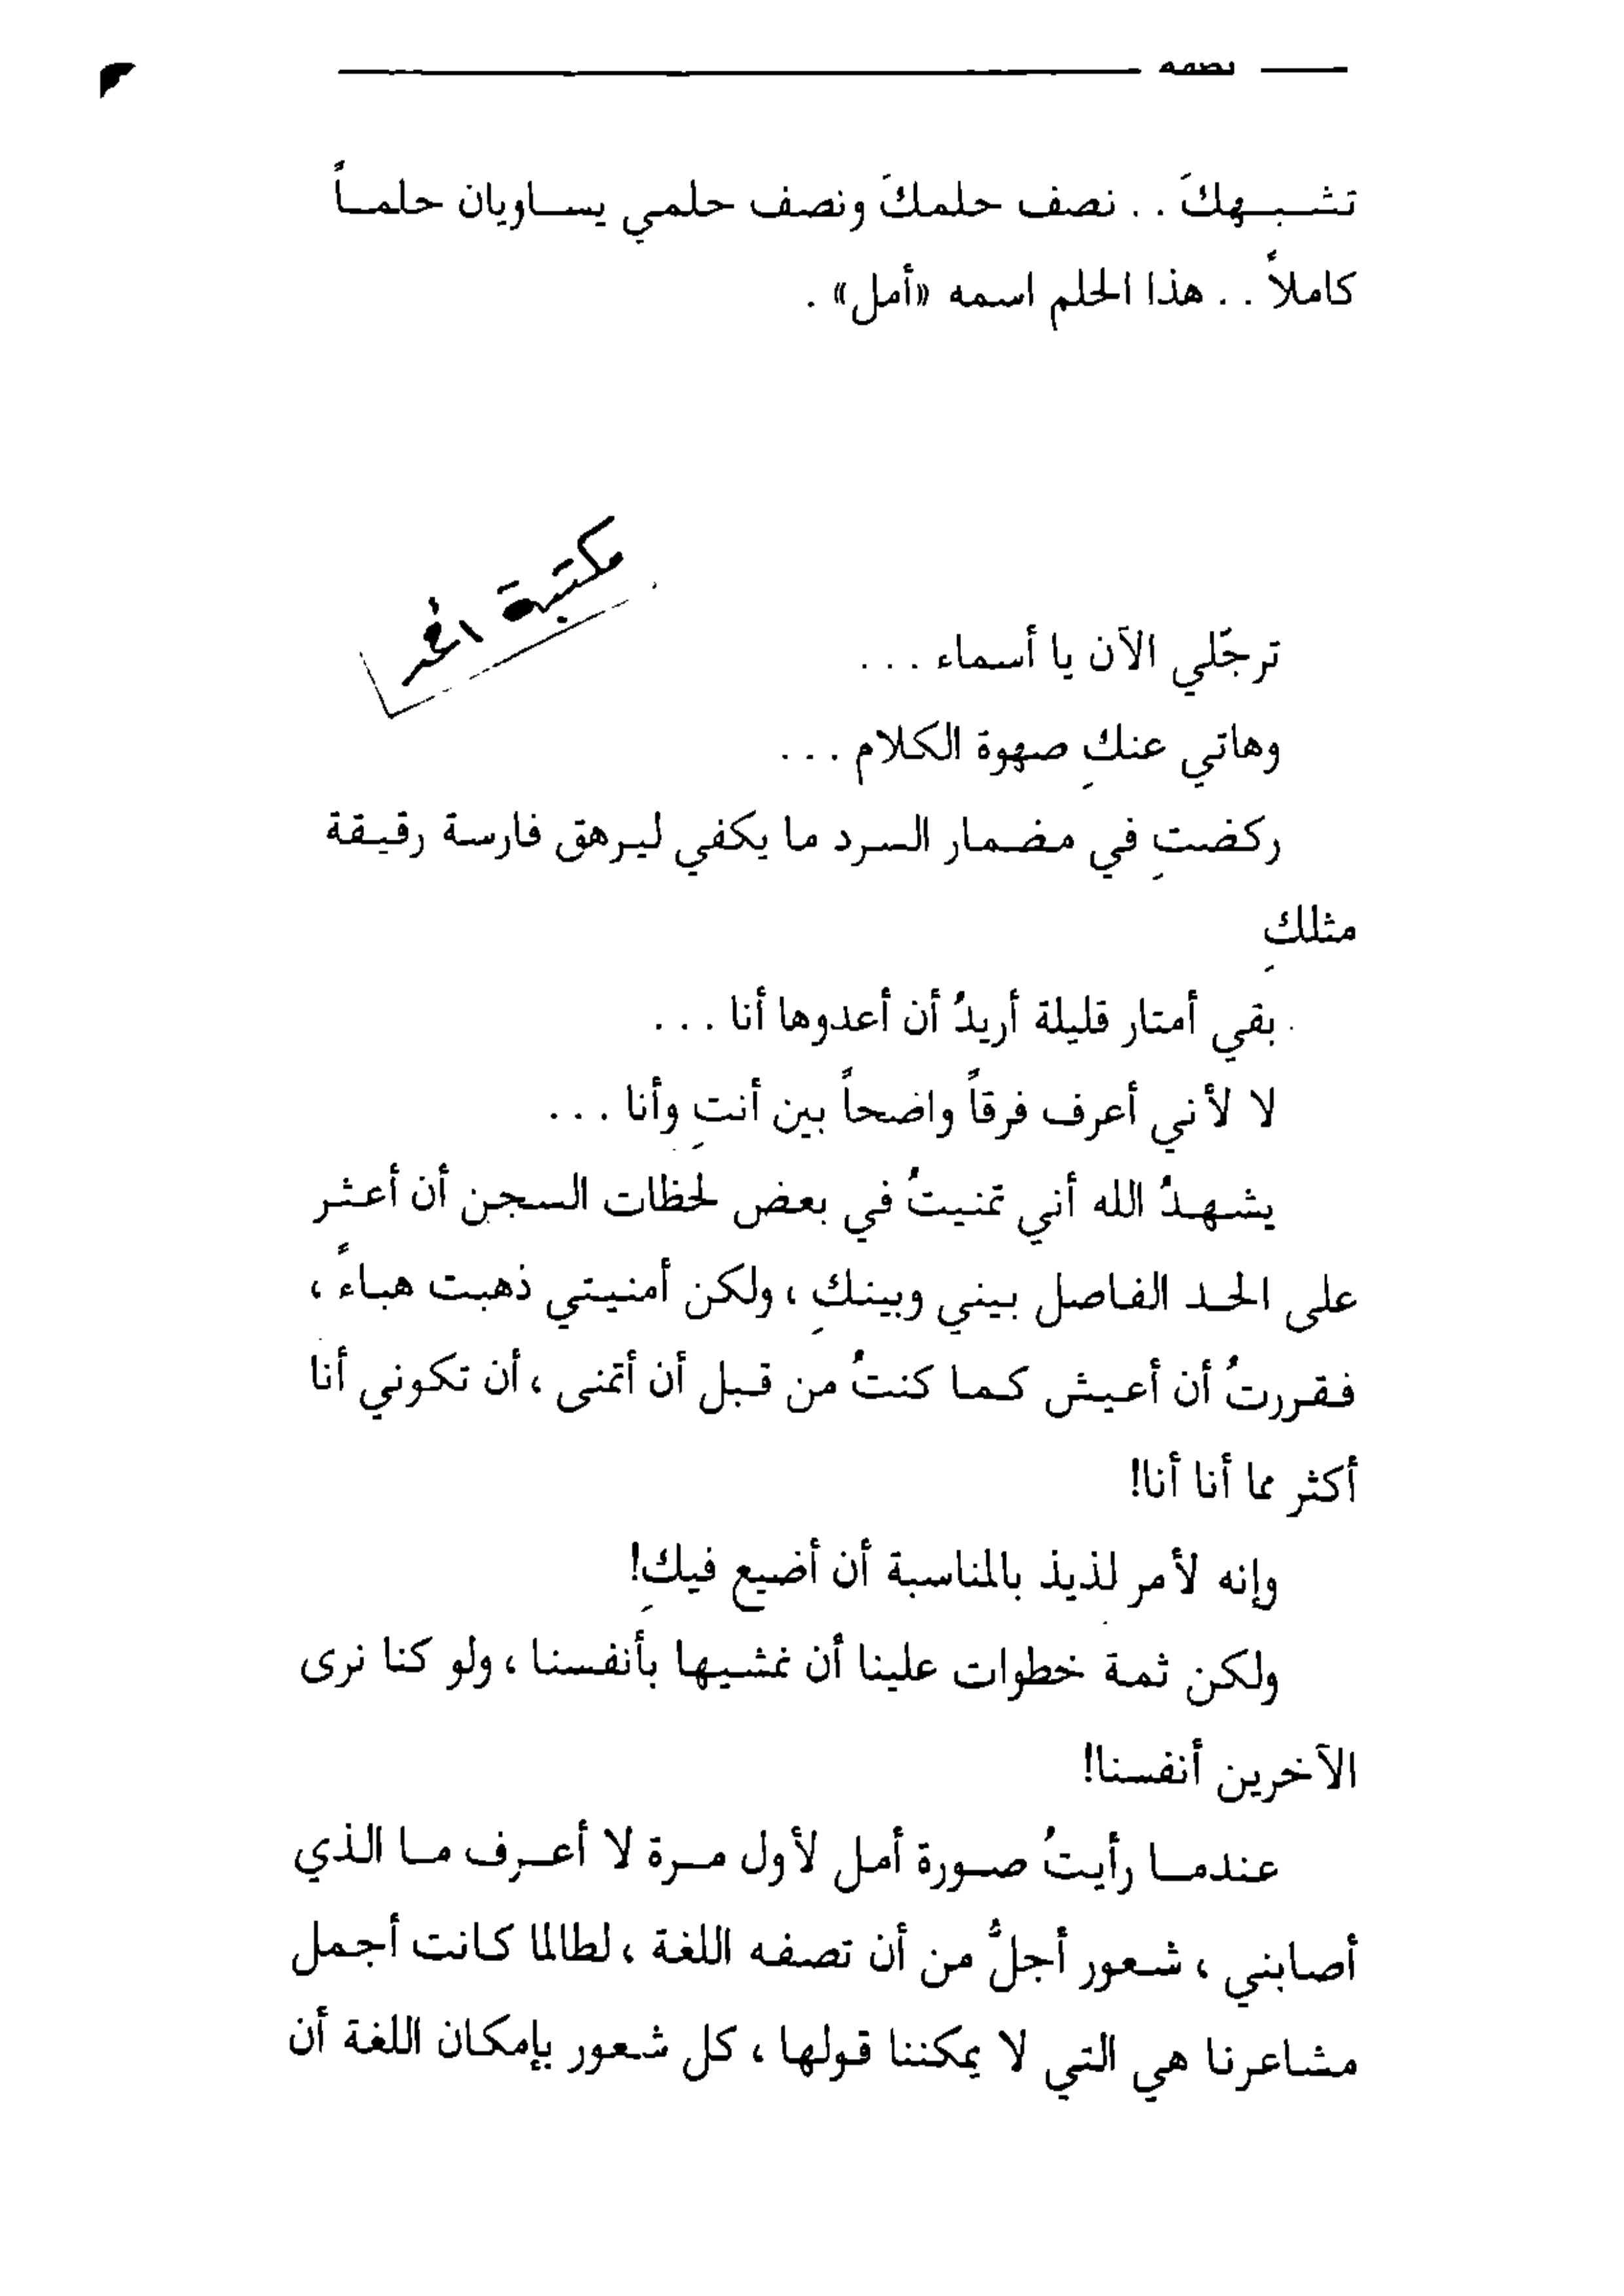 تشبهكَ . . نصف حلمكَ ونصف حلمي يساويان حلماً
كاملاً . . هذا الحلم اسمه «أمل» .
مكتبة
ترجّلي الآن يا أسماء . . .
وهاتي عنكِ صهوة الكلام . . .
ركضتِ في مضمار السرد ما يكفي ليرهق فارسة رقيقة
مثلكِ
بقي أمتار قليلة أريدُ أن أعدوها أنا . . .
لا لأني أعرف فرقاً واضحاً بين أنتِ وأنا . . .
يشهدُ الله أني تمنيتُ في بعض لحظات السجن أن أعثر
على الحد الفاصل بيني وبينكِ ، ولكن أمنيتي ذهبت هباءً ،
فقررتُ أن أعيش كما كنتُ من قبل أن أتمنى ، أن تكوني أنا
أكثر مما أنا أنا!
وإنه لأمر لذيذ بالمناسبة أن أضيع فيكِ!
ولكن ثمة خطوات علينا أن نمشيها بأنفسنا ، ولو كنا نرى
الآخرين أنفسنا!
عندما رأيتُ صورة أمل لأول مرة لا أعرف ما الذي
أصابني ، شعور أجلُّ من أن تصفه اللغة ، لطالما كانت أجمل
مشاعرنا هي التي لا يمكننا قولها ، كل شعور بإمكان اللغة أن